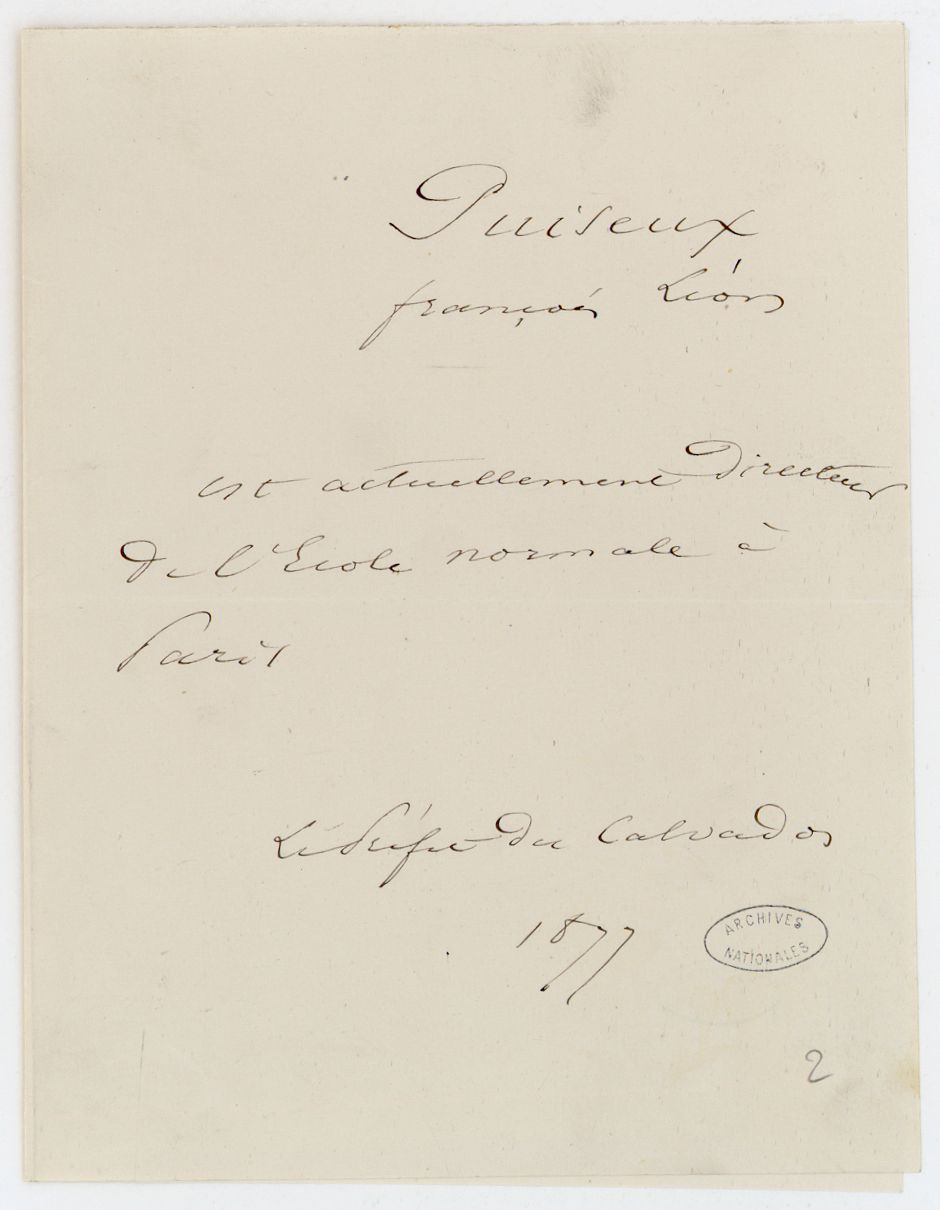 Puiseux
françois Léon
est actuellement Directeur
De l'Ecole normale à
Paris
Le Préfet Du Calvados
1877
ARCHIVES
NATIONALES
2